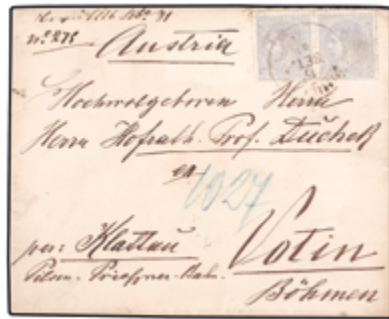 No 278
Austria
Hochwolgeboren Herrn
Herrn Hofrath. Prof. Dučhek
in
1027
per: Klattau
Votin
Pilsen-Priesner-Bahn.
Böhmen